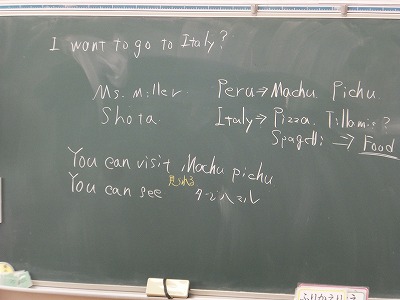 I want to go to Italy?
Ms. Miller
Shota
Peru→Machu Pichu
Italy→Pizza. Tillamis?
Spagetti → Food
You can visit Machu pichu
You can see 見れる タージハマル
ふりかえり